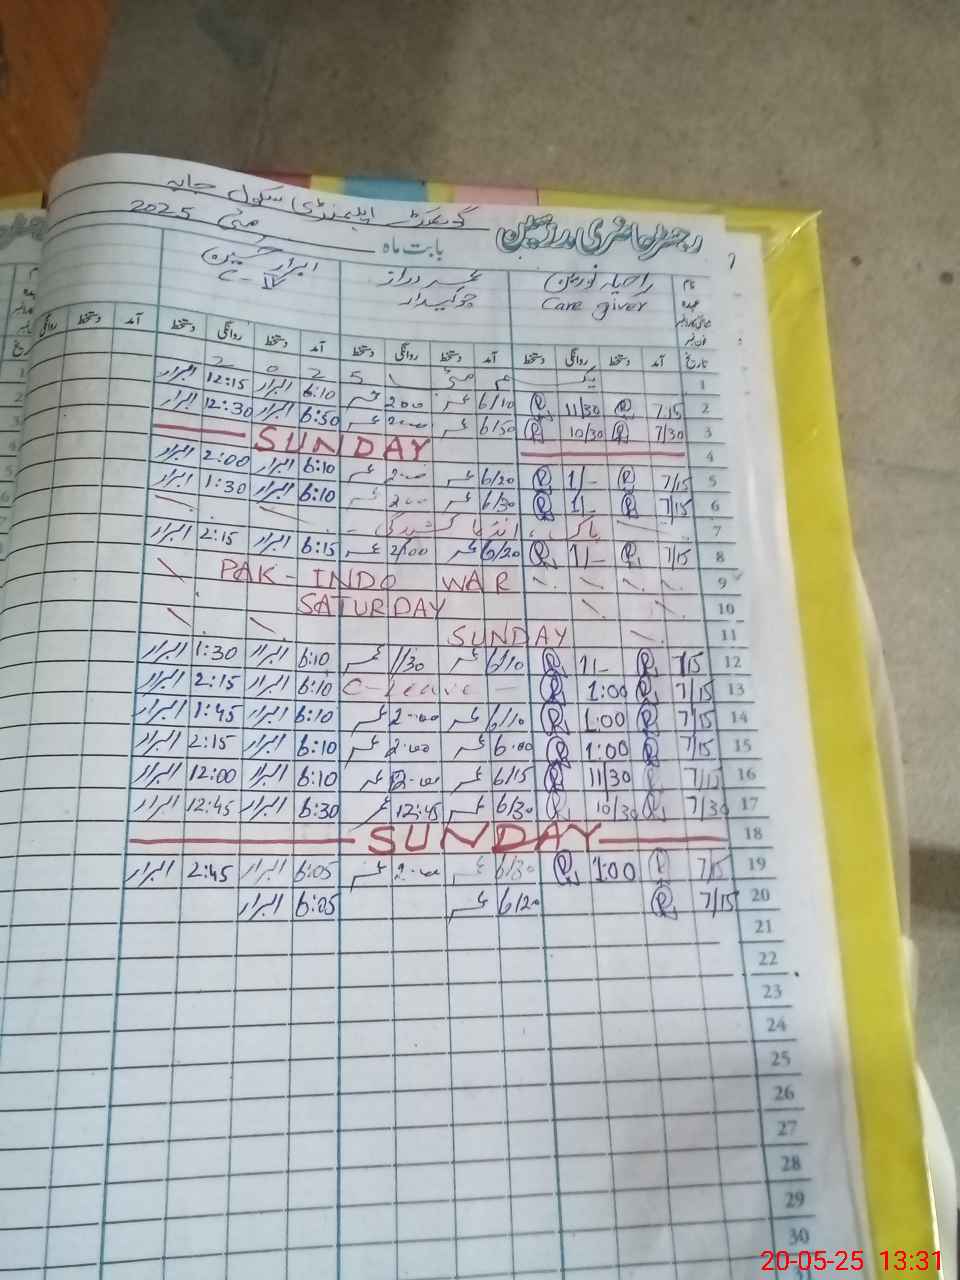 گورنمنٹ ایلیمنٹری سکول
رجسٹر حاضری مدرسین
بابت ماہ مئی 2025
نام
عہدہ
Care giver
عمر دراز
چوکیدار
ابرار حسین
C-IV
تاریخ آمد دستخط روانگی دستخط آمد دستخط روانگی دستخط آمد دستخط روانگی دستخط آمد دستخط روانگی
1 یکم مئی 2025
2 7:15 11/30 6/10 عمر 2:00 عمر 6:10 ابرار 12:15 ابرار
3 7/30 10/30 6/50 عمر 2:00 عمر 6:50 ابرار 12:30 ابرار
4 SUNDAY
5 7/15 1/- 6/20 عمر 2:00 عمر 6:10 ابرار 2:00 ابرار
6 7/15 1/- 6/30 عمر 2:00 عمر 6:10 ابرار 1:30 ابرار
7 پاک انڈیا کشیدگی
8 7/15 1/- 6/20 عمر 2/00 عمر 6:15 ابرار 2:15 ابرار
9 PAK-INDO WAR
10 SATURDAY
11 SUNDAY
12 7/15 1/- 6/10 عمر 1/30 عمر 6:10 ابرار 1:30 ابرار
13 7/15 1:00 C-Leave 6:10 ابرار 2:15 ابرار
14 7/15 1:00 6/10 عمر 2:00 عمر 6:10 ابرار 1:45 ابرار
15 7/15 1:00 6:00 عمر 2:00 عمر 6:10 ابرار 2:15 ابرار
16 7/15 11/30 6/15 عمر عمر 6:10 ابرار 12:00 ابرار
17 7/30 10/30 6/30 عمر 12:45 عمر 6:30 ابرار 12:45 ابرار
18 SUNDAY
19 7/15 1:00 6/30 عمر 2:00 عمر 6:05 ابرار 2:45 ابرار
20 7/15 6/20 عمر 6:05 ابرار
21
22
23
24
25
26
27
28
29
30
20-05-25 13:31